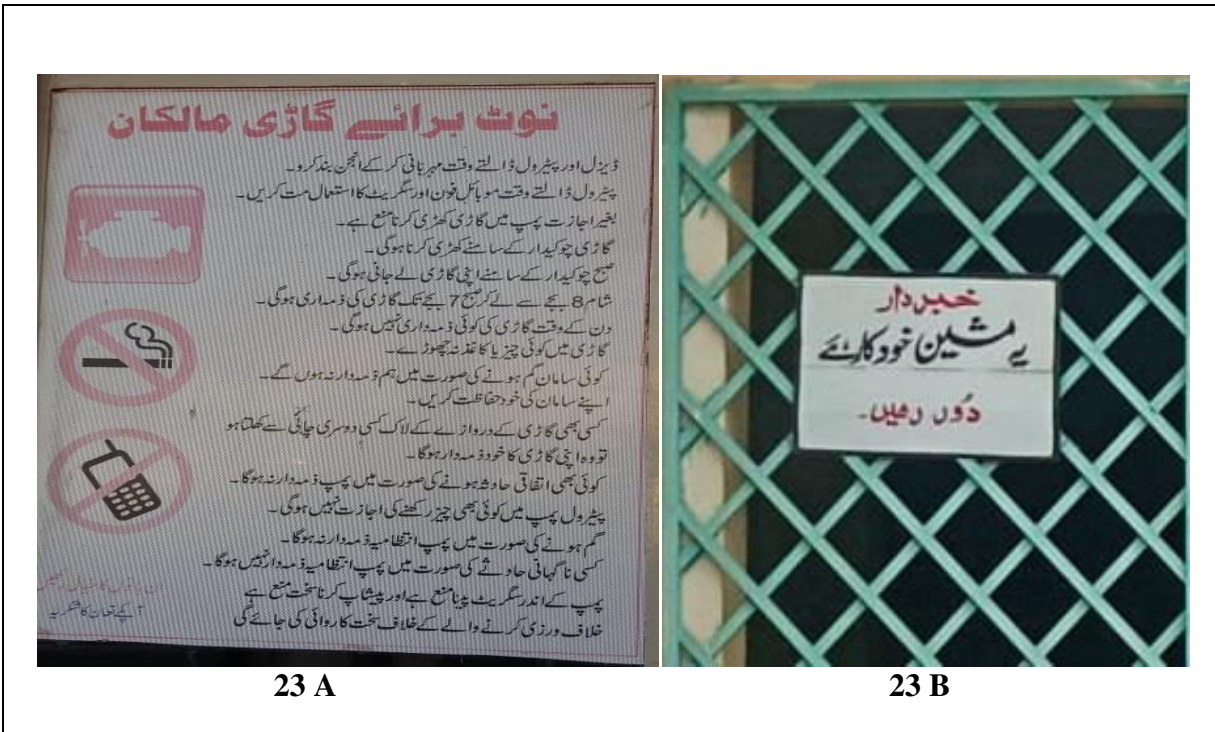 نوٹ برائے گاڑی مالکان
ڈیزل اور پیٹرول ڈالتے وقت مہربانی کر کے انجن بند کرو۔
پیٹرول ڈالتے وقت موبائل فون اور سگریٹ کا استعمال مت کریں۔
بغیر اجازت پمپ میں گاڑی کھڑی کرنا منع ہے۔
گاڑی چوکیدار کے سامنے کھڑی کرنا ہوگی۔
صبح چوکیدار کے سامنے اپنی گاڑی لے جانی ہوگی۔
شام 8 بجے سے لے کر صبح 7 بجے تک گاڑی کی ذمہ داری ہوگی۔
دن کے وقت گاڑی کی کوئی ذمہ داری نہیں ہوگی۔
گاڑی میں کوئی چیز یا کاغذ نہ چھوڑے۔
کوئی سامان گم ہونے کی صورت میں ہم ذمہ دار نہ ہوں گے۔
اپنے سامان کی خود حفاظت کریں۔
کسی بھی گاڑی کے دروازے کے لاک کسی دوسری چابی سے کھلتا ہو
تو وہ اپنی گاڑی کا خود ذمہ دار ہوگا۔
کوئی بھی اتفاقی حادثہ ہونے کی صورت میں پمپ ذمہ دار نہ ہوگا۔
پیٹرول پمپ میں کوئی بھی چیز رکھنے کی اجازت نہیں ہوگی۔
گم ہونے کی صورت میں پمپ انتظامیہ ذمہ دار نہ ہوگا۔
کسی ناگہانی حادثے کی صورت میں پمپ انتظامیہ ذمہ دار نہیں ہوگا۔
پمپ کے اندر سگریٹ پینا منع ہے اور پیشاب کرنا سخت منع ہے
خلاف ورزی کرنے والے کے خلاف سخت کاروائی کی جائے گی
ان باتوں کا خیال رکھیں
23 A
خبردار
یہ مشین خودکار ہے
دُور رہیں۔
23 B